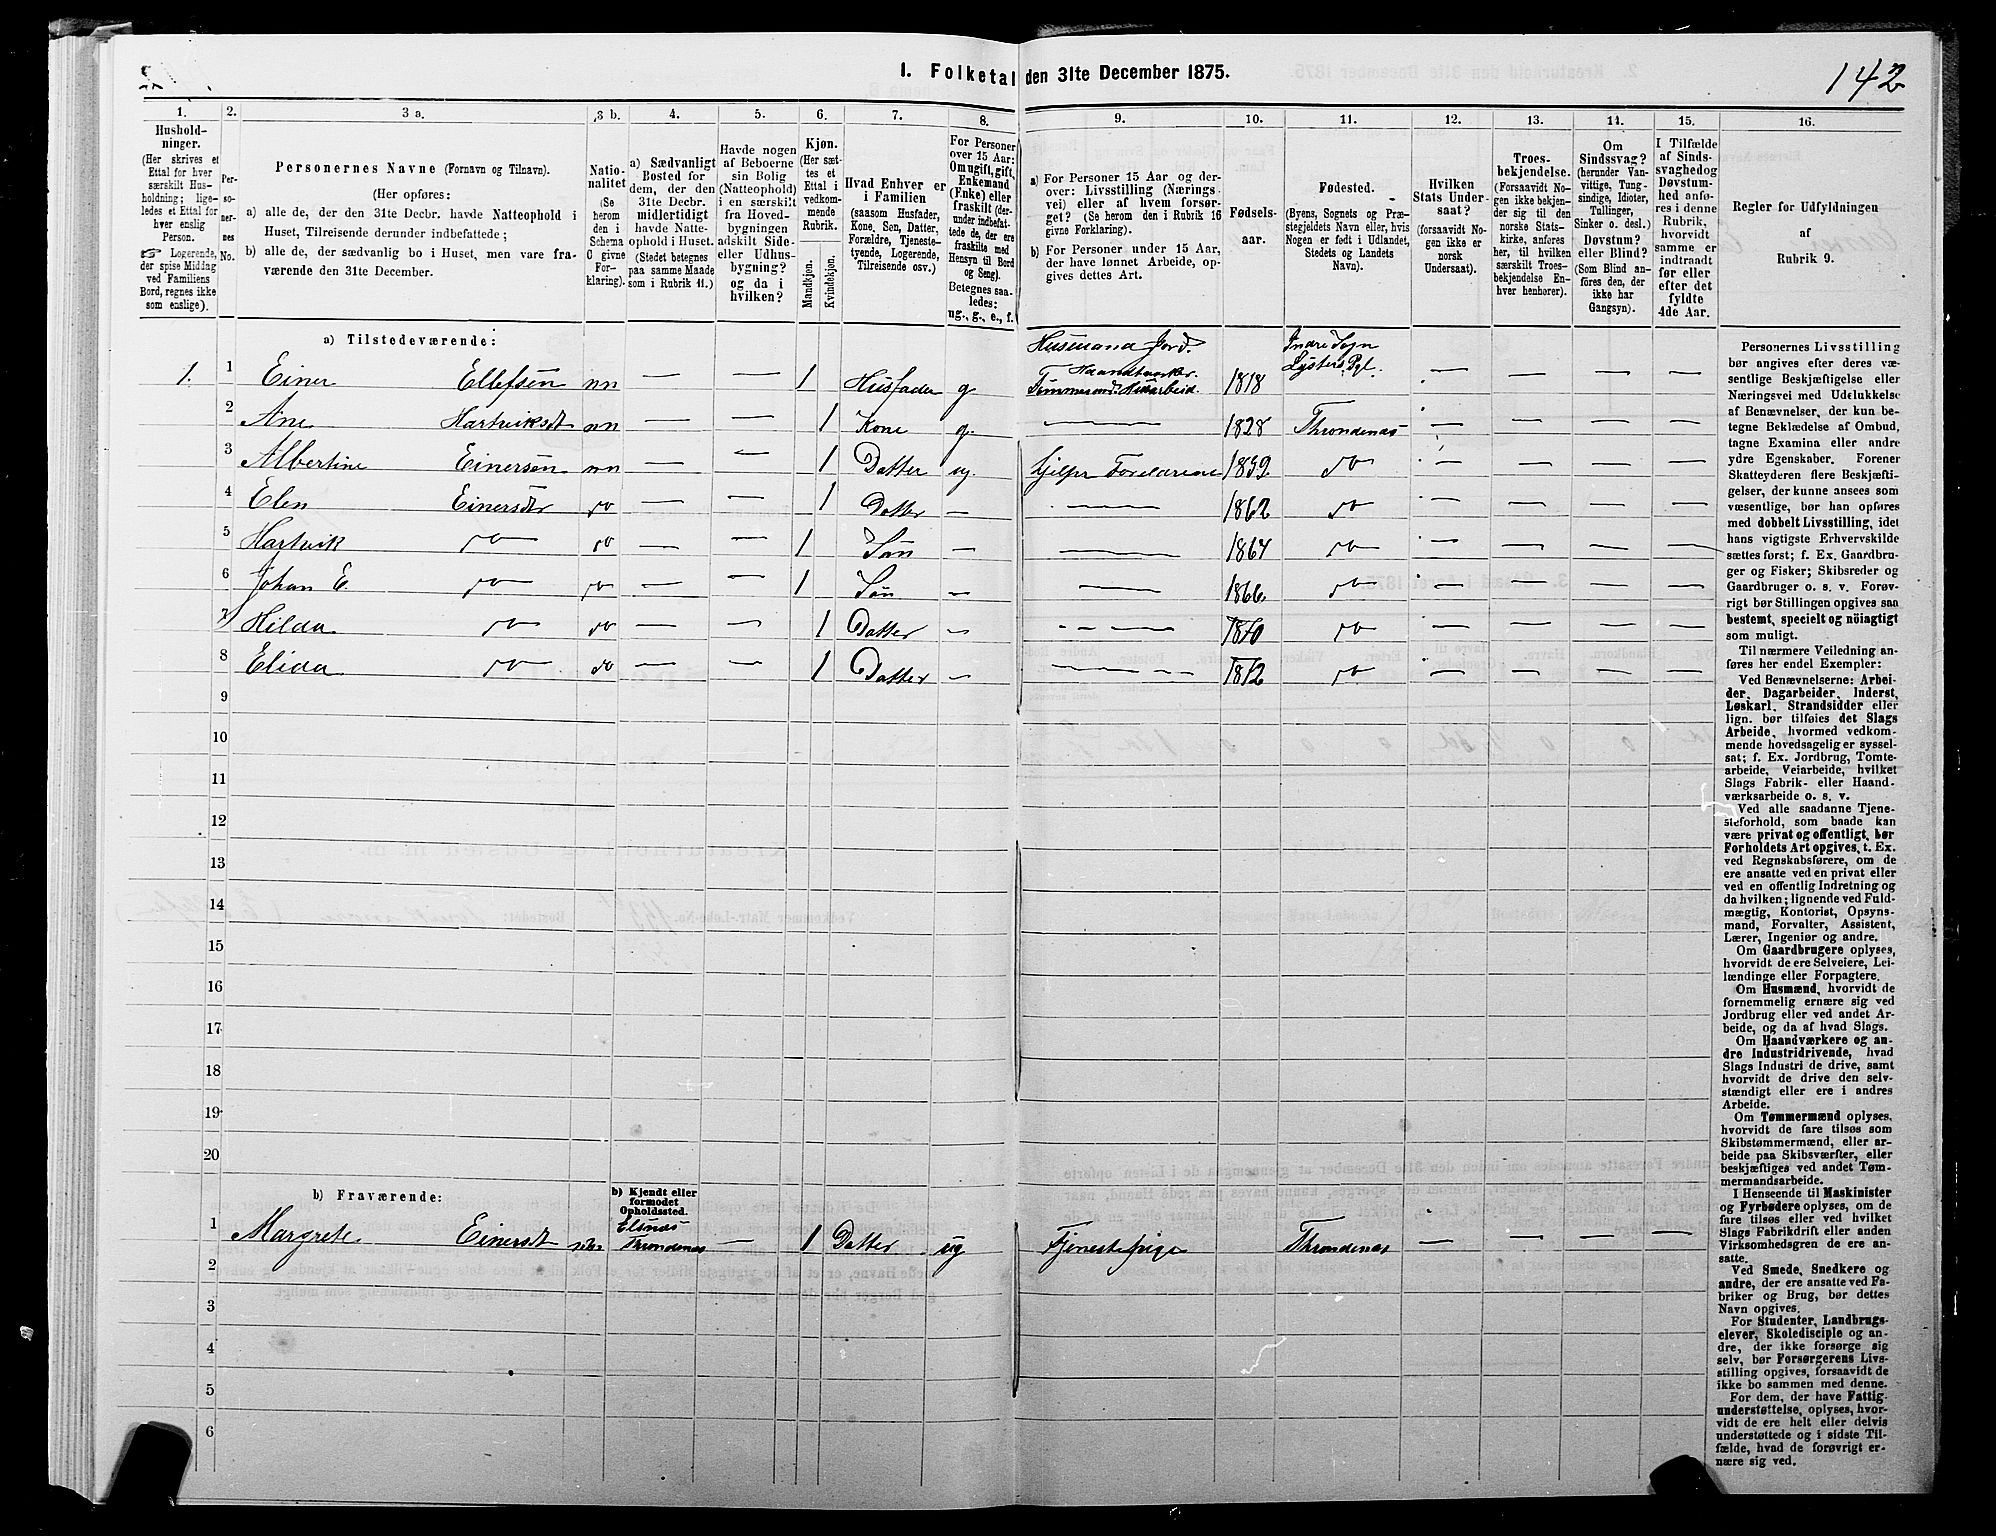 1. Folketal den 31te December 1875.
142
1.
Hushold-
ninger.
(Her skrives et
Ettal for hver
særskilt Hus-
holdning; lige-
ledes et Ettal for
hver enslig
Person.
☞ Logerende,
der spise Middag
ved Familiens
Bord, regnes ikke
som enslige).
2.
Per-
so-
ner-
nes
No.
3 a.
Personernes Navne (Fornavn og Tilnavn).
(Her opføres:
a) alle de, der den 31te Decbr. havde Natteophold i
Huset, Tilreisende derunder indbefattede;
b) alle de, der sædvanlig bo i Huset, men vare fra-
værende den 31te December.
3 b.
Natio-
nalitet
(Se
herom
den i
Schema
O givne
For-
klaring).
4.
a) Sædvanligt
Bosted for
dem, der den
31te Decbr.
midlertidigt
havde Natte-
ophold i Huset.
(Stedet betegnes
paa samme Maade
som i Rubrik 11.)
5.
Havde nogen
af Beboerne
sin Bolig
(Natteophold)
i en særskilt
fra Hoved-
bygningen
adskilt Side-
eller Udhus-
bygning?
og da i
hvilken?
6.
Kjøn.
(Her sæt-
tes et
Ettal i
vedkom-
mende
Rubrik.
Mandkjøn.
Kvindekjøn.
7.
Hvad Enhver er
i Familien
(saasom Husfader,
Kone, Søn, Datter,
Forældre, Tjeneste-
tyende, Logerende,
Tilreisende osv.)
8.
For Personer
over 15 Aar:
Om ugift, gift,
Enkemand
(Enke) eller
fraskilt (der-
under indbefat-
tede de, der ere
fraskilte med
Hensyn til Bord
og Seng).
Betegnes saa-
ledes:
ug., g., e., f.
9.
a) For Personer 15 Aar og der-
over: Livsstilling (Nærings-
vei) eller af hvem forsør-
get? (Se herom den i Rubrik 16
givne Forklaring).
b) For Personer under 15 Aar,
der have lønnet Arbeide, op-
gives dettes Art.
10.
Fødsels-
aar.
11.
Fødested.
(Byens, Sognets og Præ-
stegjeldets Navn eller, hvis
Nogen er født i Udlandet,
Stedets og Landets
Navn).
12.
Hvilken
Stats Under-
saat?
(forsaavidt No-
gen ikke er
norsk
Undersaat).
13.
Troes-
bekjendelse.
(Forsaavidt No-
gen ikke bekjen-
der sig til den
norske Stats-
kirke, anføres
her, til hvilken
særskilt Troes-
bekjendelse En-
hver henhører).
14.
Om
Sindssvag?
(herunder Van-
vittige, Tung-
sindige, Idioter,
Tullinger,
Sinker o. desl.)
Døvstum?
eller Blind?
(Som Blind an-
føres den, der
ikke har
Gangsyn).
15.
I Tilfælde
af Sinds-
svaghed og
Døvstum-
hed anfø-
res i denne
Rubrik,
hvorvidt
samme er
indtraadt
før eller
efter det
fyldte
4de Aar.
16.
Regler for Udfyldningen
af
Rubrik 9.
a) Tilstedeværende:
Husmand Jord. Indre Sogn
Haandtværker Lysters Pgl.
1. 1 Einer Ellefsen nn — — 1 Husfader g. 1818
2 Ane Hartviksdt nn — — 1 Kone g. — 1828 Throndenæs — — — —
3 Albertine Einersen nn — — 1 Datter ug. hjelper Forældrene 1859 do — — — —
4 Elen Einersdtr do — — 1 Datter — — 1862 do — — — —
5 Hartvik do do — — 1 Søn — — 1864 do — — — —
6 Johan E. do do — — 1 Søn — — 1866 do — — — —
7 Hilda do do — — 1 Datter — — 1870 do — — — —
8 Elida do do — — 1 Datter — — 1872 do — — — —
9
10
11
12
13
14
15
16
17
18
19
20
b) Fraværende:
b) Kjendt eller
formodet
Opholdssted.
Elsnæs
1 Margrete Einersdt Throndenæs — 1 Datter ug Tjenestepige Throndenæs — — — —
2
3
4
5
6
Personernes Livsstilling
bør angives efter deres væ-
sentlige Beskjæftigelse eller
Næringsvei med Udelukkelse
af Benævnelser, der kun be-
tegne Beklædelse af Ombud,
tagne Examina eller andre
ydre Egenskaber. Forener
Skatteyderen flere Beskjæfti-
gelser, der kunne ansees som
væsentlige, bør han opføres
med dobbelt Livsstilling, idet
hans vigtigste Erhvervskilde
sættes først; f. Ex. Gaardbru-
ger og Fisker; Skibsreder og
Gaardbruger o. s. v. Forøv-
rigt bør Stillingen opgives saa
bestemt, specielt og nöiagtigt
som muligt.
Til nærmere Veiledning an-
føres her endel Exempler:
Ved Benævnelserne: Arbei-
der, Dagarbeider, Inderst,
Løskarl, Strandsidder eller
lign. bør tilføies det Slags
Arbeide, hvormed vedkom-
mende hovedsagelig er syssel-
sat; f. Ex. Jordbrug, Tomte-
arbeide, Veiarbeide, hvilket
Slags Fabrik- eller Haand-
værksarbeide o. s. v.
Ved alle saadanne Tjene-
steforhold, som baade kan
være privat og offentligt, bør
Forholdets Art opgives, t. Ex.
ved Regnskabsførere, om de
ere ansatte ved en privat eller
ved en offentlig Indretning og
da hvilken; lignende ved Fuld-
mægtig, Kontorist, Opsyns-
mand, Forvalter, Assistent,
Lærer, Ingeniør og andre.
Om Gaardbrugere oplyses,
hvorvidt de ere Selveiere, Lei-
lændinge eller Forpagtere.
Om Husmænd, hvorvidt de
fornemmelig ernære sig ved
Jordbrug eller ved andet Ar-
beide, og da af hvad Slags.
Om Haandværkere og an-
dre Industridrivende, hvad
Slags Industri de drive, samt
hvorvidt de drive den selv-
stændigt eller ere i andres
Arbeide.
Om Tømmermænd oplyses,
hvorvidt de fare tilsøs som
Skibstømmermænd, eller ar-
beide paa Skibsværfter, eller
beskjæftiges ved andet Tøm-
mermandsarbeide.
I Henseende til Maskinister
og Fyrbødere oplyses, om de
fare tilsøs eller ved hvilket
Slags Fabrikdrift eller anden
Virksomhedsgren de ere an-
satte.
Ved Smede, Snedkere og
andre, der ere ansatte ved Fa-
briker og Brug, bør dettes
Navn opgives.
For Studenter, Landbrugs-
elever, Skoledisciple og an-
dre, der ikke forsørge sig
selv, bør Forsørgerens Livs-
stilling opgives, forsaavidt de
ikke bo sammen med denne.
For dem, der have Fattig-
understøttelse, oplyses, hvor-
vidt de ere helt eller delvis
understøttede og i sidste Til-
fælde, hvad de forøvrigt er-
nære sig ved.